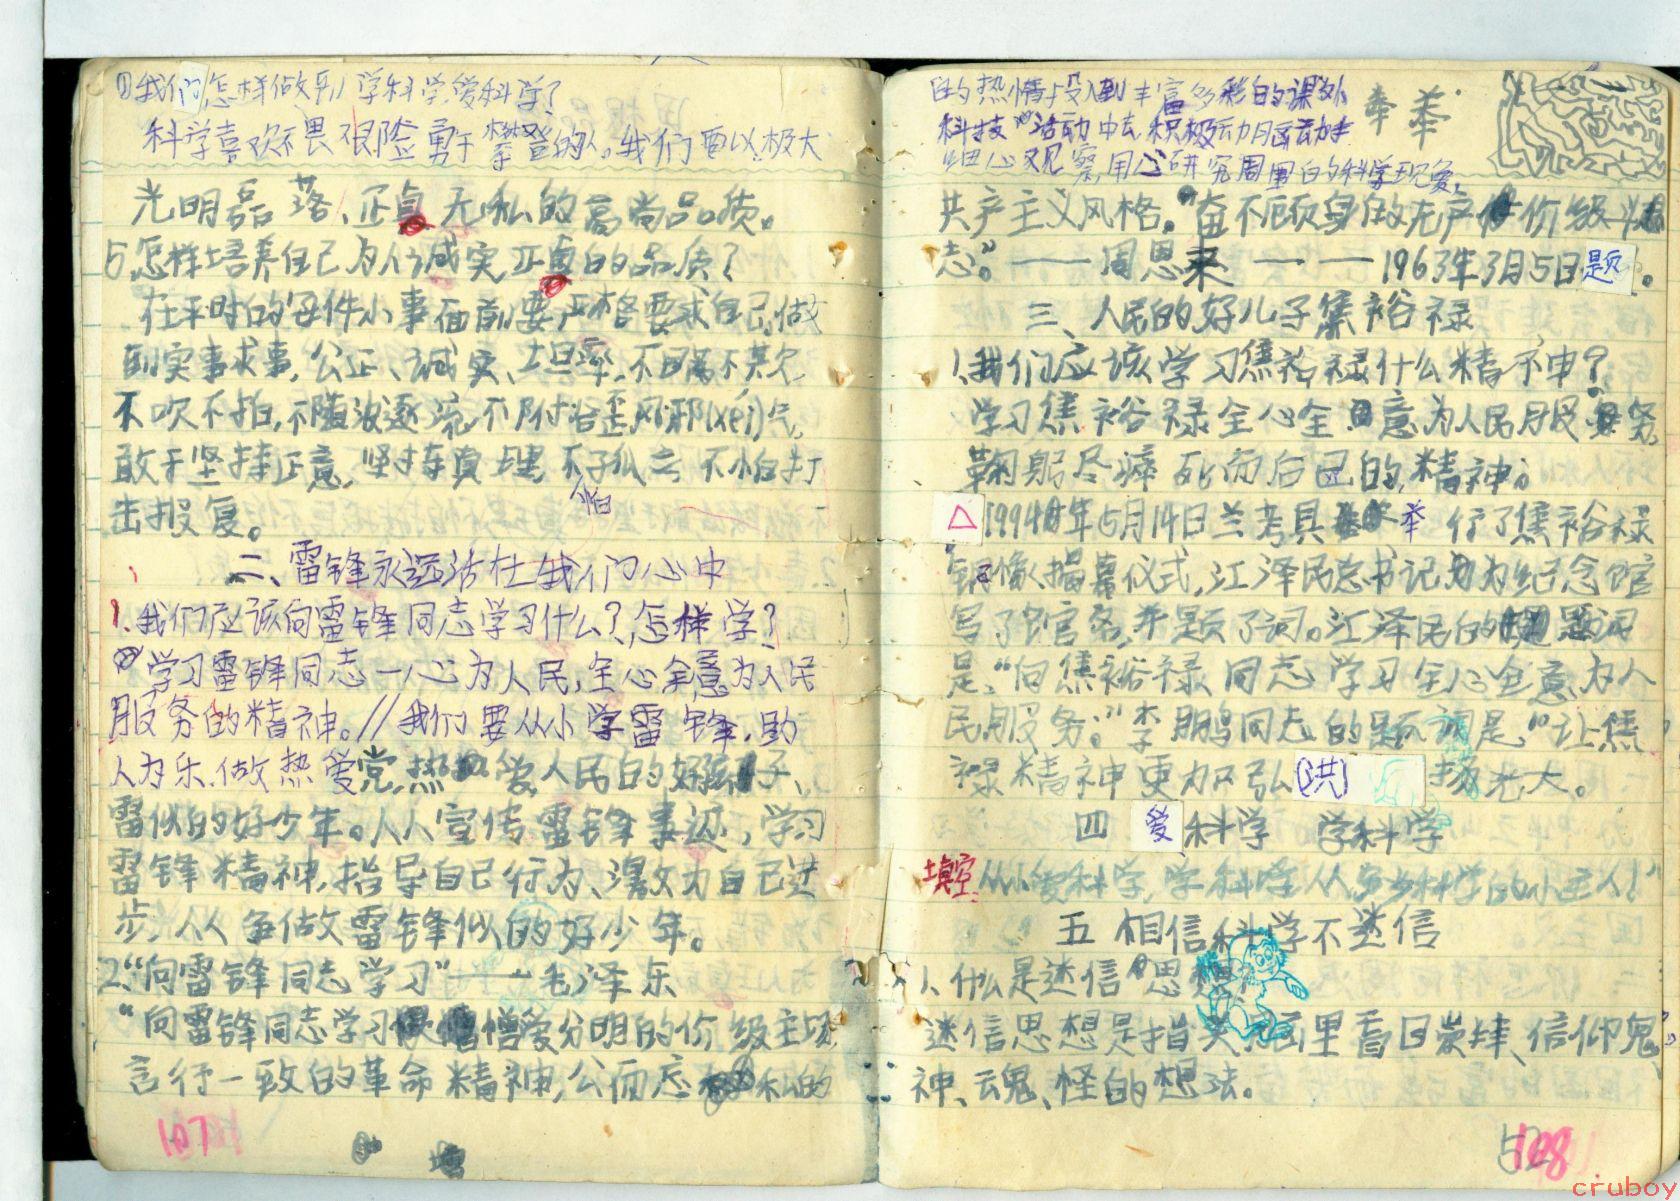 ①我们怎样做到学科学爱科学?
科学喜欢不畏艰险勇于攀登的人。我们要以极大
光明磊落、正直无私的高尚品质。
5.怎样培养自己为人诚实正直的品质?
在平时的每件小事面前,要严格要求自己,做
到实事求事,公正、诚实、坦率,不瞒不欺,
不吹不拍,不随波逐流,不附合歪风邪(xéi)气,
敢于坚持正意,坚持真理,不孤立,不怕打
怕
击报复。
二、雷锋永远活在我们心中
1.我们应该向雷锋同志学习什么?,怎样学?
学习雷锋同志一心为人民,全心全意为人民
服务的精神。//我们要从小学雷锋,助
人为乐,做热爱党,热爱人民的好孩子、
雷似的好少年。人人宣传雷锋事迹,学习
雷锋精神,指导自己行为、激励自己进
步,人人争做雷锋似的好少年。
2.“向雷锋同志学习”——毛泽东
“向雷锋同志学习憎爱分明的价级主场,
言行一致的革命精神,公而忘私的
107
增
的热情投入到丰富多彩的课外
科技活动中去,积极动脑动手
细心观察,用心研究周围的科学现象。
举 举
共产主义风格。奋不顾身的无产价级斗
志。”——周恩来——1963年3月5日题。
三、人民的好儿子焦裕禄
1.我们应该学习焦裕禄什么精神?
学习焦裕禄全心全意为人民服务,
鞠躬尽瘁死而后已的精神;
△1994年5月14日兰考具举行了焦裕禄
铜像揭幕仪式,江泽民总书记为纪念馆
写了馆名,并题了词。江泽民的题词
是,“向焦裕禄同志学习全心全意为人
民服务。”李鹏同志的题词是,“让焦
禄精神更加弘(洪)扬光大。
四 爱科学 学科学
填空:从小爱科学,学科学从争当科学的小主人!
五 相信科学不迷信
1、什么是迷信思想?
迷信思想是指头脑里盲目崇肆、信仰鬼、
神、魂、怪的想法。
52
108
cruboy